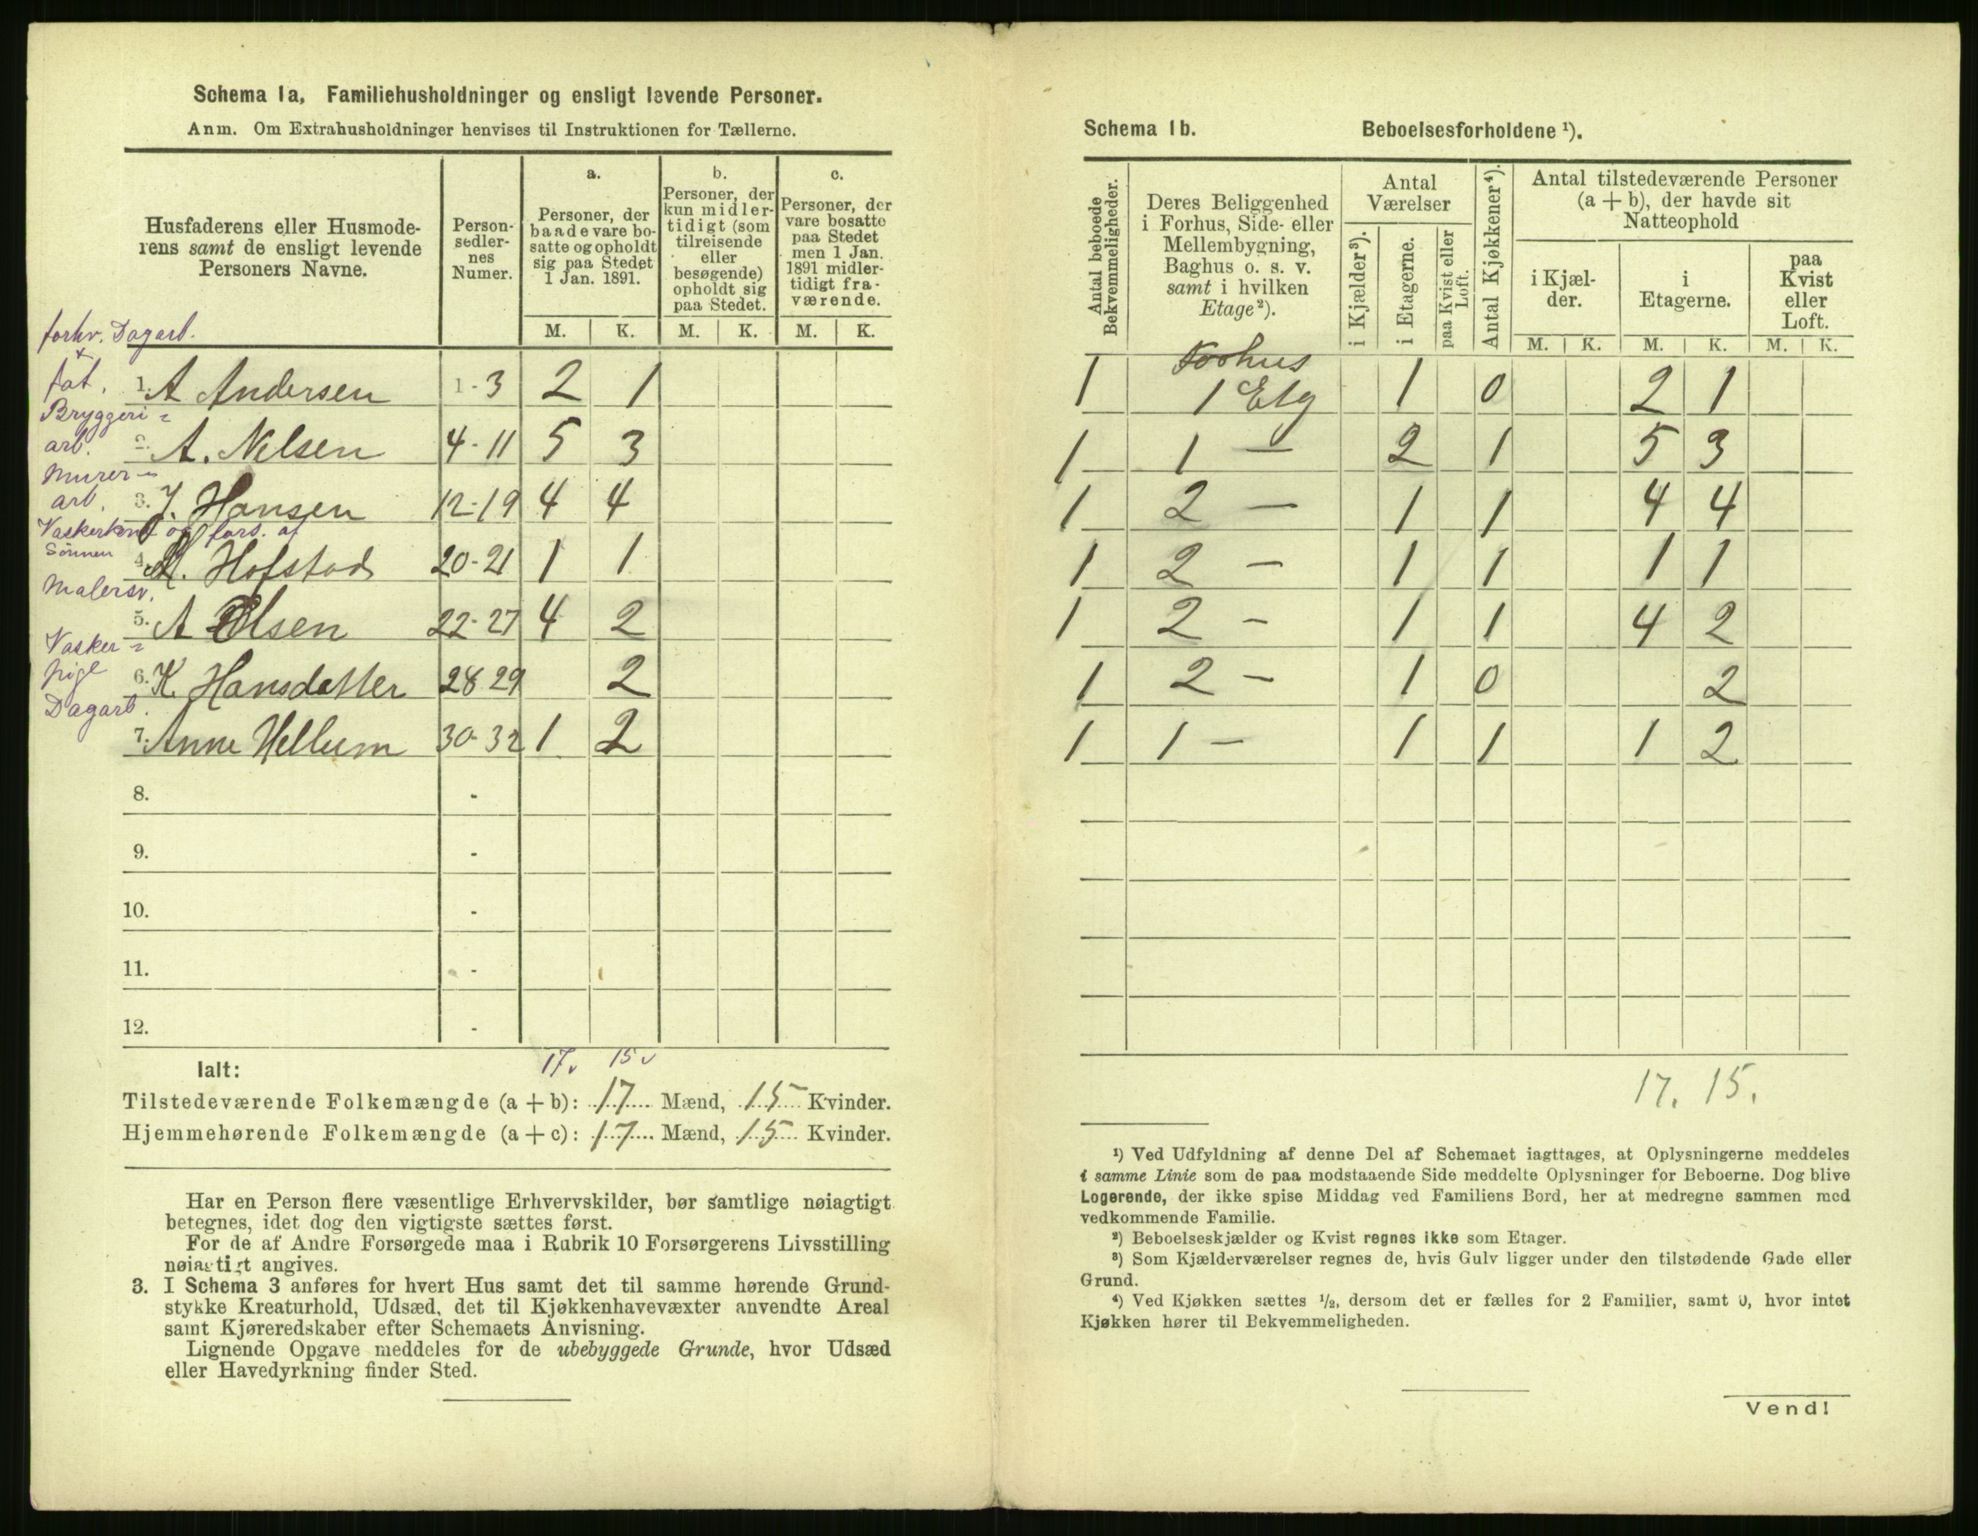 Schema 1a, Familiehusholdninger og ensligt levende Personer.
Anm. Om Extrahusholdninger henvises til Instruktionen for Tællerne.
Husfaderens eller Husmode-
rens samt de ensligt levende
Personers Navne.
Person-
sedler-
nes
Numer.
a.
Personer, der
baade vare bo-
satte og opholdt
sig paa Stedet
1 Jan. 1891.
b.
Personer, der
kun midler-
tidigt (som
tilreisende
eller
besøgende)
opholdt sig
paa Stedet.
c.
Personer, der
vare bosatte
paa Stedet
men 1 Jan.
1891 midler-
tidigt fra-
værende.
M. K. M. K. M. K.
forhv. Dagarb.
fat.
1. A Andersen 1-3 2 1
Bryggeri-
arb.
2. A. Nilsen 4-11 5 3
Murer-
arb.
3. J. Hansen 12-19 4 4
Vaskerkone og fors. af
Sønnen
4. M. Hofstad 20-21 1 1
Malersv.
5. A Olsen 22-27 4 2
Vasker-
pige
6. K. Hansdatter 28-29 2
Dagarb.
7. Anne Hellum 30-32 1 2
8. -
9. -
10. -
11. -
12. -
17 v 15 v
Ialt:
Tilstedeværende Folkemængde (a + b): 17 Mænd, 15 Kvinder.
Hjemmehørende Folkemængde (a + c): 17 Mænd, 15 Kvinder.
Har en Person flere væsentlige Erhvervskilder, bør samtlige nøiagtigt
betegnes, idet dog den vigtigste sættes først.
For de af Andre Forsørgede maa i Rubrik 10 Forsørgerens Livsstilling
nøiagtigt angives.
3. I Schema 3 anføres for hvert Hus samt det til samme hørende Grund-
stykke Kreaturhold, Udsæd, det til Kjøkkenhavevæxter anvendte Areal
samt Kjøreredskaber efter Schemaets Anvisning.
Lignende Opgave meddeles for de ubebyggede Grunde, hvor Udsæd
eller Havedyrkning finder Sted.
Schema 1b. Beboelsesforholdene ¹).
Antal beboede
Bekvemmeligheder.
Deres Beliggenhed
i Forhus, Side- eller
Mellembygning,
Baghus o. s. v.
samt i hvilken
Etage²).
Antal
Værelser
i Kjælder³).
i Etagerne.
paa Kvist eller
Loft.
Antal Kjøkkener⁴).
Antal tilstedeværende Personer
(a + b), der havde sit
Natteophold
i Kjæl-
der.
i
Etagerne.
paa
Kvist
eller
Loft.
M. K. M. K. M. K.
Forhus
1 1 Etg 1 0 2 1
1 1 - 2 1 5 3
1 2 - 1 1 4 4
1 2 - 1 1 1 1
1 2 - 1 1 4 2
1 2 - 1 0 2
1 1 - 1 1 1 2
17. 15.
¹) Ved Udfyldning af denne Del af Schemaet iagttages, at Oplysningerne meddeles
i samme Linie som de paa modstaaende Side meddelte Oplysninger for Beboerne. Dog blive
Logerende, der ikke spise Middag ved Familiens Bord, her at medregne sammen med
vedkommende Familie.
²) Beboelseskjælder og Kvist regnes ikke som Etager.
³) Som Kjælderværelser regnes de, hvis Gulv ligger under den tilstødende Gade eller
Grund.
⁴) Ved Kjøkken sættes ½, dersom det er fælles for 2 Familier, samt 0, hvor intet
Kjøkken hører til Bekvemmeligheden.
Vend!